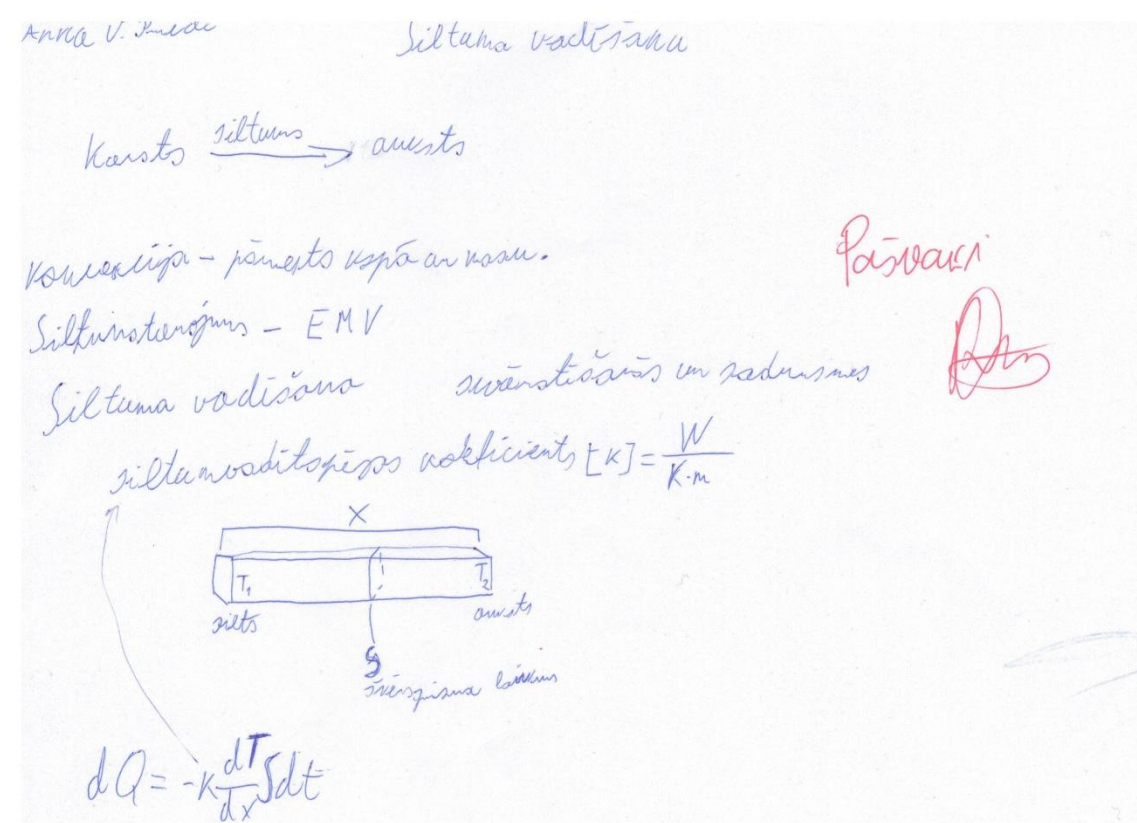 Anna V. Siltuma vadīšana
Karsts siltums auksts
Konvekcija - pārnests kopā ar masu.
Pašvaki
Siltumstarojums - EMV
Siltuma vadīšana svārstīšanās un sadursmes
siltumvadītspējas koeficients [K] = W / K·m
X
T₁ T₂
silts auksts
S
šķērsgriezuma laukums
dQ = -K dT/dx S dt